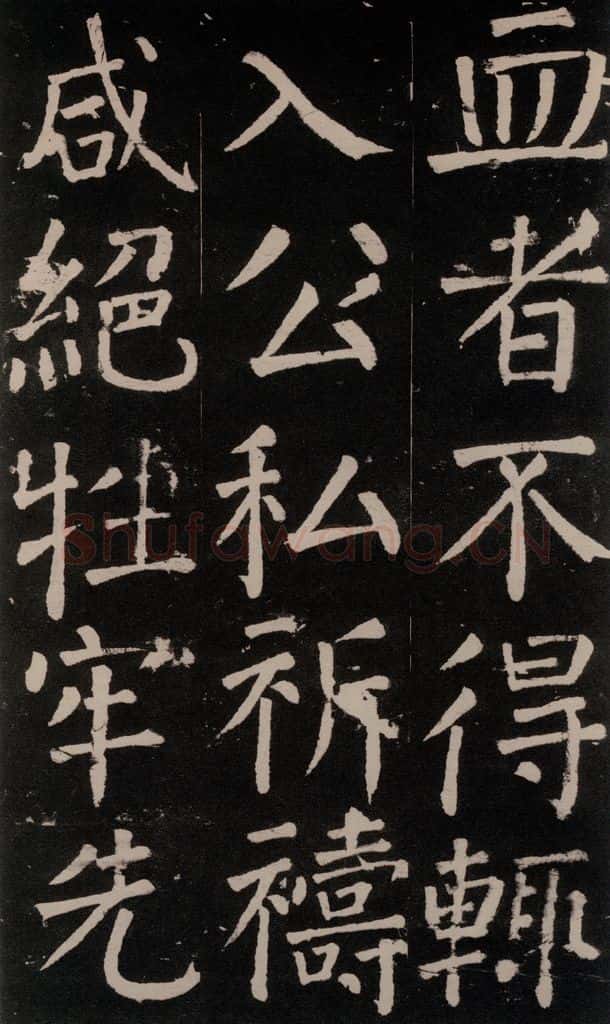 血者不得輙
入公私祈禱
咸絕牲牢先
Shufawang.CN